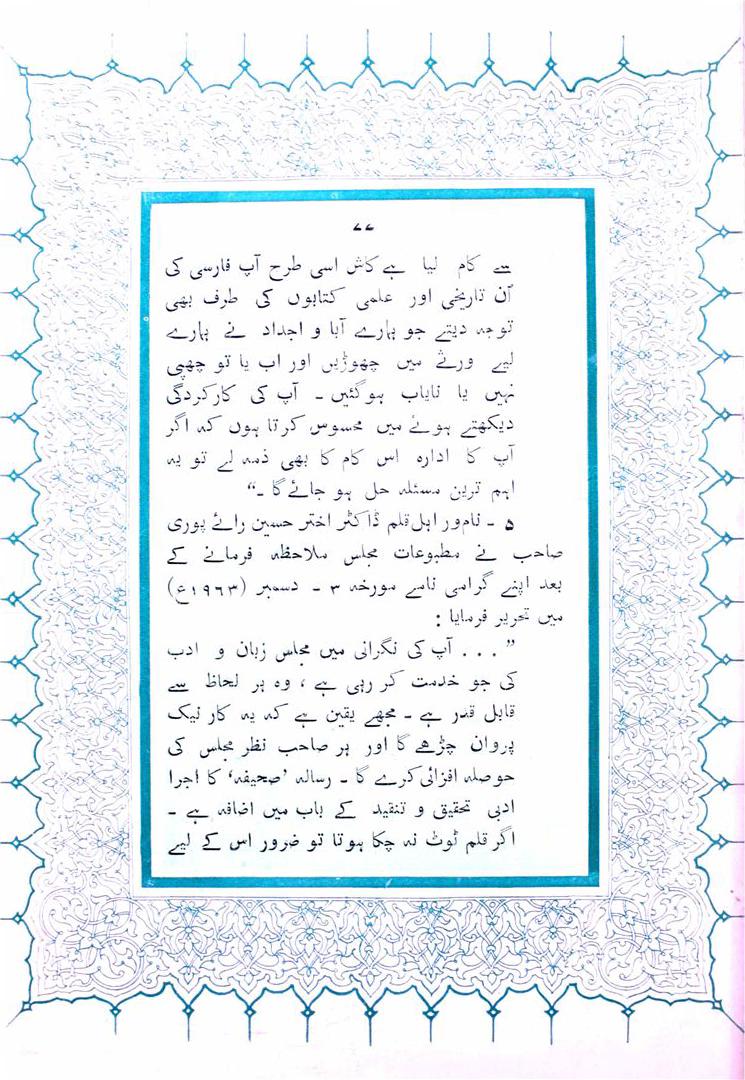 ۷۷
سے کام لیا ہے کاش اسی طرح آپ فارسی کی
اُن تاریخی اور علمی کتابوں کی طرف بھی
توجہ دیتے جو ہمارے آبا و اجداد نے ہمارے
لیے ورثے میں چھوڑیں اور اب یا تو چھپی
نہیں یا نایاب ہوگئیں ۔ آپ کی کارکردگی
دیکھتے ہوئے میں محسوس کرتا ہوں کہ اگر
آپ کا ادارہ اس کام کا بھی ذمہ لے تو یہ
اہم ترین مسئلہ حل ہو جائے گا ۔“
۵ ۔ نام ور اہل قلم ڈاکٹر اختر حسین رائے پوری
صاحب نے مطبوعات مجلس ملاحظہ فرمانے کے
بعد اپنے گرامی نامے مورخہ ۳ ۔ دسمبر (۱۹۶۳ع)
میں تحریر فرمایا :
” . . . آپ کی نگرانی میں مجلس زبان و ادب
کی جو خدمت کر رہی ہے ، وہ ہر لحاظ سے
قابل قدر ہے ۔ مجھے یقین ہے کہ یہ کار نیک
پروان چڑھے گا اور ہر صاحب نظر مجلس کی
حوصلہ افزائی کرے گا ۔ رسالہ ’صحیفہ‘ کا اجرا
ادبی تحقیق و تنقید کے باب میں اضافہ ہے ۔
اگر قلم ٹوٹ نہ چکا ہوتا تو ضرور اس کے لیے